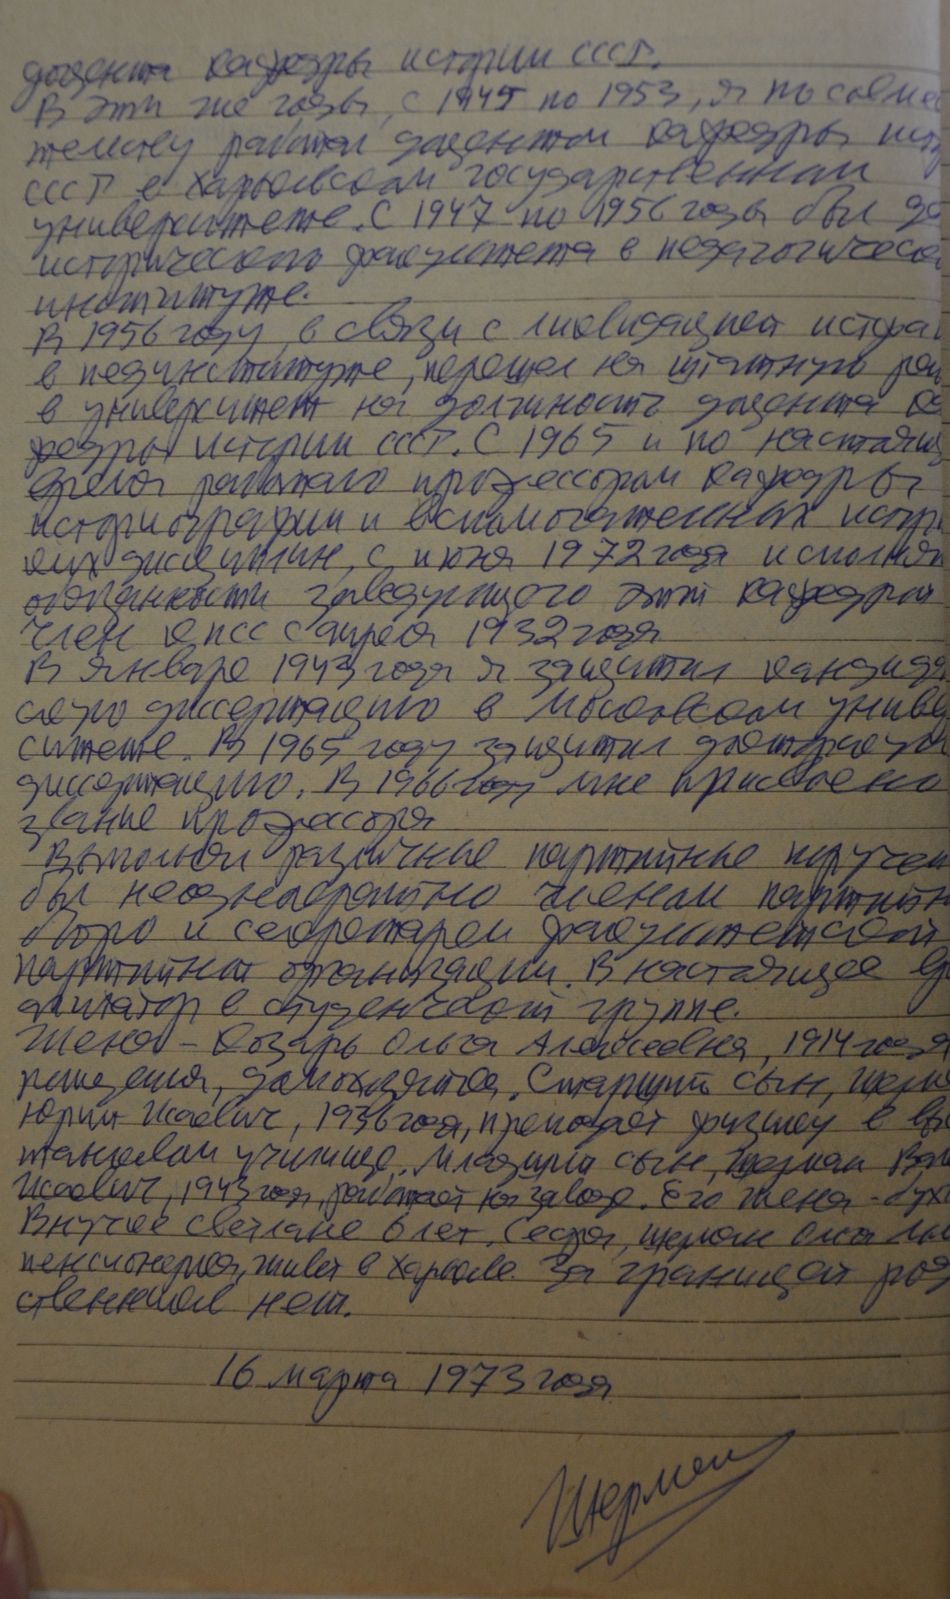 доцента кафедры истории СССР.
В эти же годы, с 1945 по 1953, я по совме
тельству работал доцентом кафедры ист
СССР в Харьковском государственном
университете. С 1947 по 1956 годы был де
исторического факультета в педагогическо
институте.
В 1956 году, в связи с ликвидацией истфа
в пединституте, перешел на штатную ра
в университет на должность доцента ка
федры истории СССР. С 1965 и по настоящ
время работаю профессором кафедры
историографии и вспомогательных истори
ских дисциплин, с июня 1972 года исполня
обязанности заведующего этой кафедрой
Член КПСС с апреля 1932 года
В январе 1943 года я защитил кандида
скую диссертацию в Московском униве
ситете. В 1965 году защитил докторскую
диссертацию. В 1966 году мне присвоено
звание профессора
Выполнял различные партийные поручен
был неоднократно членом партийн
бюро и секретарем факультетской
партийной организации. В настоящее вр
в студенческой группе.
Жена – Козарь Ольга Алексеевна, 1914 года
рождения, домохозяйка. Старший сын, Шерм
Юрий Исаевич, 1936 года, преподает физику в
танковом училище. Младший сын, Шерман
Исаевич, 1943 года, работает на заводе. Его жена - бух
Внучке Светлане 6 лет. Сестра, Шерман
пенсионерка, живет в Харькове. За границей род
ственников нет.
16 марта 1973 года
Шерман